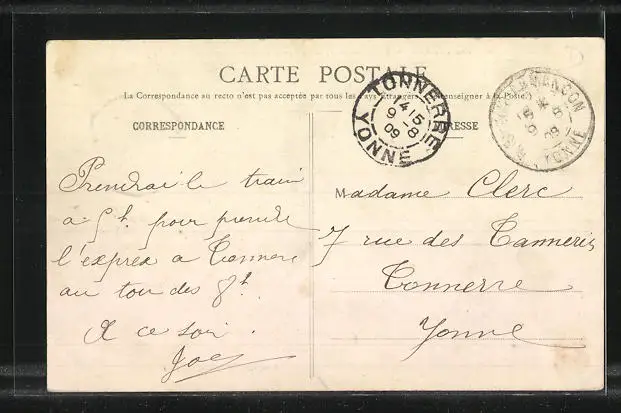 CARTE POSTALE
(La Correspondance au recto n'est pas acceptée par tous les pays étrangers. Renseigner à la Poste.)
CORRESPONDANCE
RESSE
TONNERRE
14 15
9 - 8
09
YONNE
9 - 8
09
YONNE
Prendrai le train
a 5h. pour prendre
l'express a Tonnerre
au tou des 8h.
A ce soir.
Madame Clerc
7 rue des Tanneries
Tonnerre
Yonne